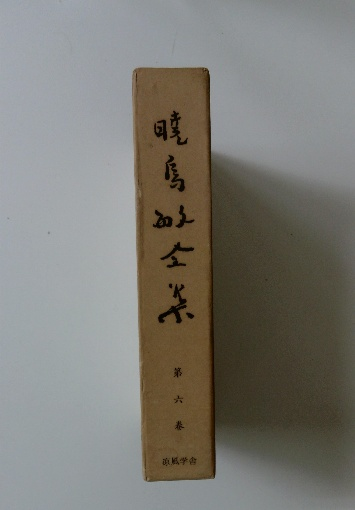 暁烏敏全集
第六卷
涼風学舎